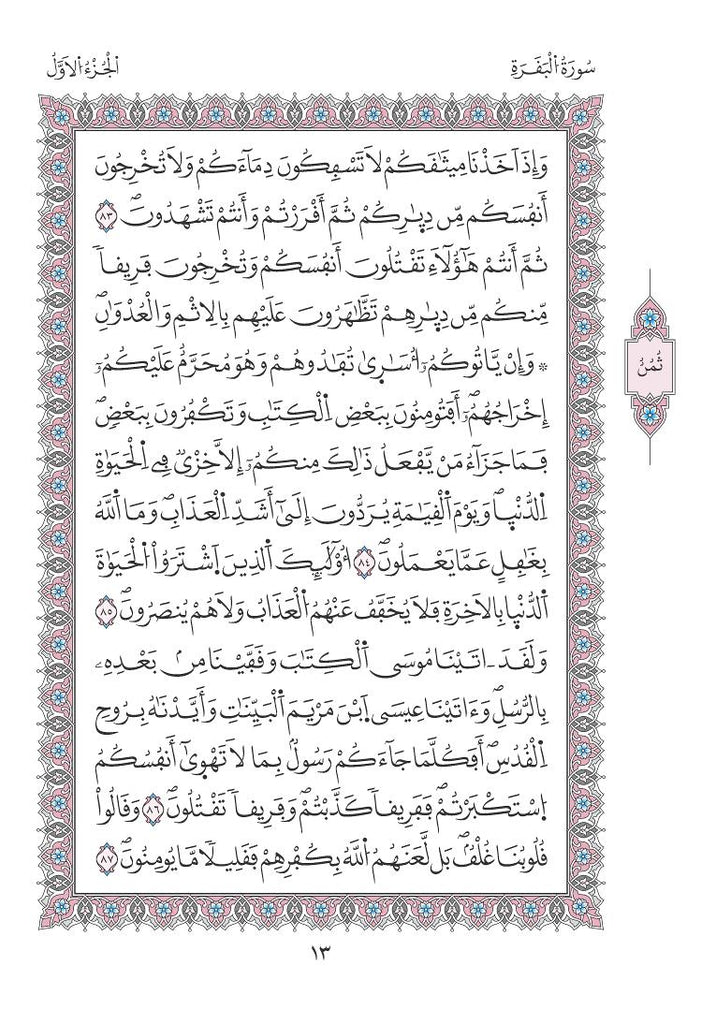 سُورَةُ الْبَقَرَةِ
الْجُزْءُ الْأَوَّلُ
وَإِذَ اَخَذْنَا مِيثَٰقَكُمْ لَا تَسْفِكُونَ دِمَآءَكُمْ وَلَا تُخْرِجُونَ
أَنفُسَكُم مِّن دِيٰ۪رِكُمْ ثُمَّ أَقْرَرْتُمْ وَأَنتُمْ تَشْهَدُونَۖ ٨٣
ثُمَّ أَنتُمْ هَٰٓؤُلَآءِ تَقْتُلُونَ أَنفُسَكُمْ وَتُخْرِجُونَ فَرِيقاٗ
مِّنكُم مِّن دِيٰ۪رِهِمْ تَظَّٰهَرُونَ عَلَيْهِم بِالِاثْمِ وَالْعُدْوَٰنِۖ
۞ وَإِنْ يَّاتُوكُمُۥٓ أُسَٰرَىٰ تُفَٰدُوهُمْ وَهُوَ مُحَرَّمٌ عَلَيْكُمُۥٓ
إِخْرَاجُهُمُۥٓۖ أَفَتُومِنُونَ بِبَعْضِ اِ۬لْكِتَٰبِ وَتَكْفُرُونَ بِبَعْضٖۖ
فَمَا جَزَآءُ مَنْ يَّفْعَلُ ذَٰلِكَ مِنكُمُۥٓ إِلَّا خِزْيٞ فِے اِ۬لْحَيَوٰةِ
اِ۬لدُّنْي۪اۖ وَيَوْمَ اَ۬لْقِيَٰمَةِ يُرَدُّونَ إِلَىٰٓ أَشَدِّ اِ۬لْعَذَابِۖ وَمَا اَ۬للَّهُ
بِغَٰفِلٍ عَمَّا يَعْمَلُونَۖ ٨٤ أُوْلَٰٓئِكَ اَ۬لذِينَ اَ۪شْتَرَوُاْ اُ۬لْحَيَوٰةَ
اَ۬لدُّنْي۪ا بِالَاخِرَةِ فَلَا يُخَفَّفُ عَنْهُمُ اُ۬لْعَذَابُ وَلَا هُمْ يُنصَرُونَۖ ٨٥
وَلَقَدَ اٰتَيْنَا مُوسَى اَ۬لْكِتَٰبَ وَقَفَّيْنَا مِنۢ بَعْدِهِۦ
بِالرُّسُلِۖ وَءَاتَيْنَا عِيسَى اَ۪بْنَ مَرْيَمَ اَ۬لْبَيِّنَٰتِ وَأَيَّدْنَٰهُ بِرُوحِ
اِ۬لْقُدُسِۖ أَفَكُلَّمَا جَآءَكُمْ رَسُولُۢ بِمَا لَا تَهْوَىٰٓ أَنفُسُكُمُ
اُ۪سْتَكْبَرْتُمْۖ فَفَرِيقاٗ كَذَّبْتُمْۖ وَفَرِيقاٗ تَقْتُلُونَۖ ٨٦ وَقَالُواْ
قُلُوبُنَا غُلْفُۢۖ بَل لَّعَنَهُمُ اُ۬للَّهُ بِكُفْرِهِمْ فَقَلِيلاٗ مَّا يُومِنُونَۖ ٨٧
ثُمُنُ
١٣